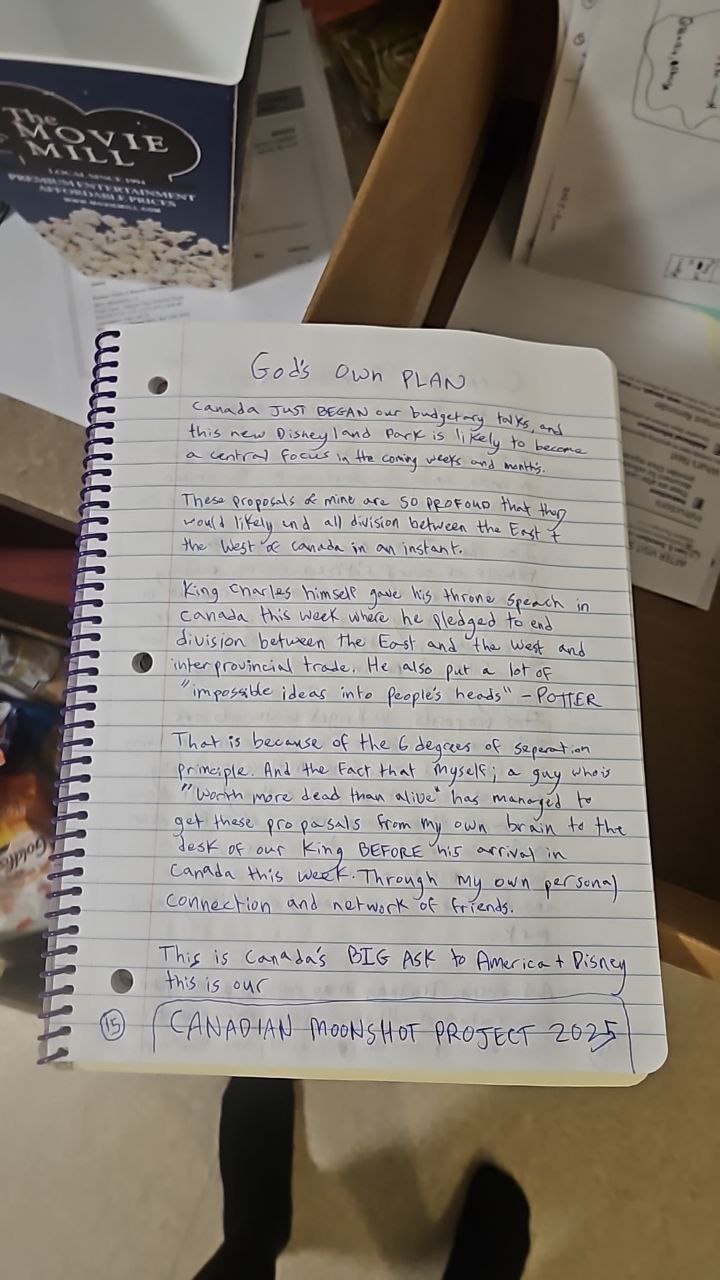 The
MOVIE
MILL
LOCAL SINCE 1994
PREMIUM ENTERTAINMENT
AFFORDABLE PRICES
WWW.MOVIEMILL.COM
God's Own PLAN
Canada JUST BEGAN our budgetary talks, and
this new Disneyland Park is likely to become
a central focus in the coming weeks and months.
These proposals of mine are SO PROFOUD that they
would likely end all division between the East +
the West of Canada in an instant.
King Charles himself gave his throne speach in
Canada this week where he pledged to end
division between the East and the West and
interprovincial trade. He also put a lot of
"impossible ideas into people's heads" - POTTER
That is because of the 6 degrees of seperation
principle. And the fact that myself; a guy who is
"worth more dead than alive" has managed to
get these proposals from my own brain to the
desk of our King BEFORE his arrival in
Canada this week. Through my own personal
connection and network of friends.
This is Canada's BIG ASK to America + Disney
this is our
15 CANADIAN MOONSHOT PROJECT 2025
Goldfis